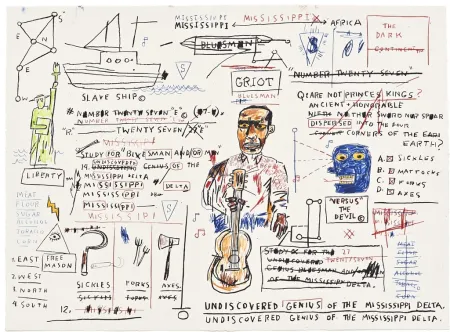 MISSISSIPPI
MISSISSIPPI
MISSISSIPPI
AFRICA
THE
DARK
CONTINENT
BLUESMAN
GRIOT
BLUESMAN
"NUMBER TWENTY SEVEN"
SLAVE SHIP©
# NUMBER TWENTY SEVEN "E"©
NUMBER TWENTY SEVEN
TWENTY SEVEN
STUDY FOR BLUESMAN AND/OR
UNDISCOVERED GENIUS OF THE
MISSISSIPPI DELTA
MISSISSIPPI DELTA
MISSISSIPPI
MISSISSIPPI
MISSISSIPPI
Q: ARE NOT PRINCES KINGS?
ANCIENT + HONORABLE
NEITH NOTHER SWORD NOR SPEAR
DISPERSED INTO THE FOUR
CORNERS OF THE EARTH
EARTH?
A. SICKLES
B. MATTOCKS
C. FORKS
D. AXES
LIBERTY
MEAT
FLOUR
SUGAR
ALCOHOL
TOBACCO
CORN
"VERSUS"
THE
DEVIL©
MISSISSIPPI
MEAT
FLOUR
SUGAR
ALCOHOL
TOBACCO
CORN
1. EAST
2. WEST
3. NORTH
4. SOUTH
FREE
MASON
12.
SICKLES FORKS AXES
SICKLES FORKS AXES
STUDY FOR THE 27
UNDISCOVERED TWENTYSEVEN
GENIUS BLUESMAN AND/OR
OF THE MISSISSIPPI DELTA.
UNDISCOVERED GENIUS OF THE MISSISSIPPI DELTA.
UNDISCOVERED GENIUS OF THE MISSISSIPPI DELTA.